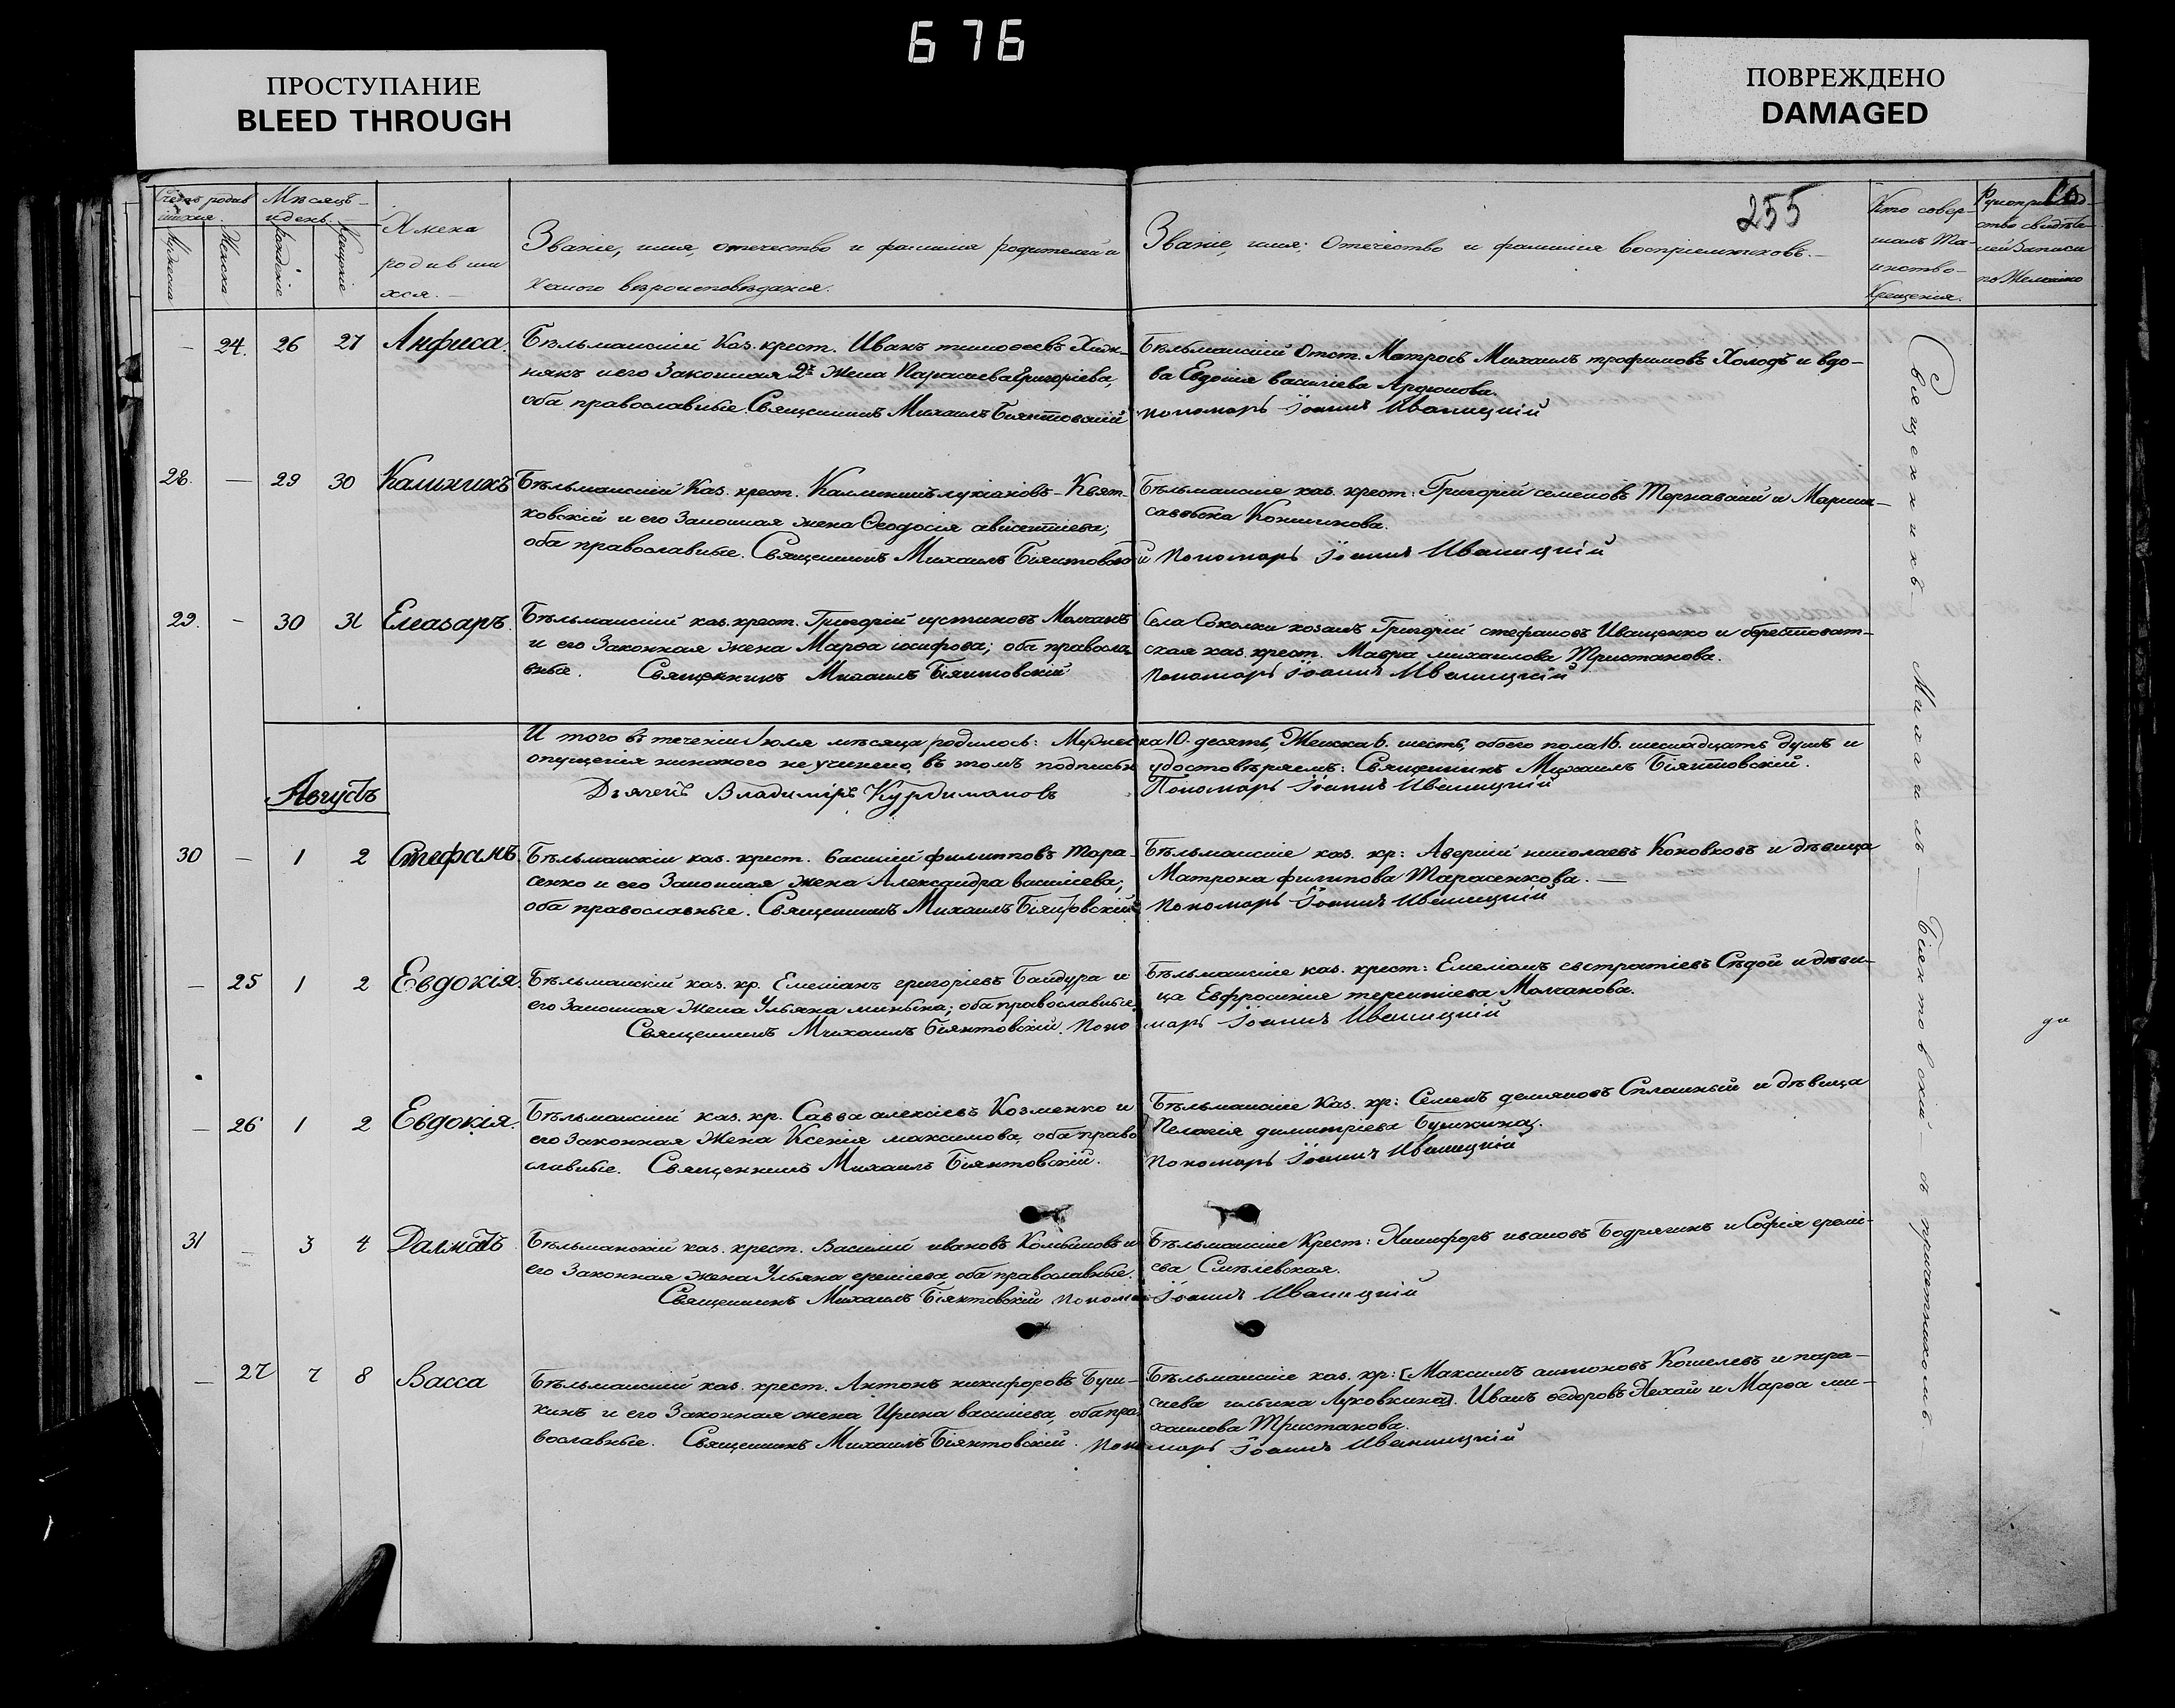 676
ПРОСТУПАНИЕ
BLEED THROUGH
ПОВРЕЖДЕНО
DAMAGED
255
Счетъ родив
шихся.
Мѣсяцъ
и день.
Мужеска
Женска
Рожденіе
Крещеніе
Имена
родивши
хся.
Званіе, имя, отечество и фамилія родителей и
какого вѣроисповѣданія.
Званіе, имя, отечество и фамилія воспріемниковъ.
Кто совер-
шалъ Та-
инство
Крещенія.
Рукоприклад-
ство свидѣте-
лей записи
по желанію
— 24. 26 27 Анфиса. Бѣльманскій Каз. крест. Иванъ тимоѳеевъ Хиж-
някъ и его Законная 2я жена Параскева Григоріева,
оба православные. Священникъ Михаилъ Біянтовскій
Бѣльманскій Отст. Матросъ Михаилъ трофимовъ Холодъ и вдо-
ва Евдокія василіева
пономарь Іоаннъ Иваницкій
28. — 29 30 Калиникъ Бѣльманскій Каз. крест. Калиникъ лукіановъ Квят-
ковскій и его Законная жена Ѳеодосія
оба православные. Священникъ Михаилъ Біянтовскій
Бѣльманскіе каз. крест: Григорій семеновъ Тернавскій и Марина
саввына
Пономарь Іоаннъ Иваницкій
29. — 30 31 Елеазаръ. Бѣльманскій каз. крест. Григорій иустиновъ Молчанъ
и его Законная жена Марѳа іосифова; оба правосла
вные. Священникъ Михаилъ Біянтовскій
Села Соколки козакъ Григорій стефановъ Иващенко и берестоват-
ская каз. крест. Мавра михаилова Тристанова.
Пономарь Іоаннъ Иваницкій
И того въ теченіи Іюля мѣсяца родилось: Мужес
опущенія никакого не учинено, въ томъ подписью
Дьячекъ Владиміръ Курдимановъ
ка 10. десять, Женска 6. шесть, обоего пола 16. шеснадцать душъ и
удостовѣряемъ: Священникъ Михаилъ Біянтовскій.
Пономарь Іоаннъ Иваницкій
Августъ
30 — 1 2 Стефанъ. Бѣльманскій каз. крест. василій филипповъ Тара-
сенко и его Законная жена Александра василіева;
оба православные. Священникъ Михаилъ Біянтовскій
Бѣльманскіе каз. кр: Аверкій николаевъ Коновковъ и дѣвица
Матрона филипова Тарасенкова.
пономарь Іоаннъ Иваницкій
— 25 1 2 Евдокія. Бѣльманскій каз. кр. Емеліанъ григоріевъ Бандура и
его Законная жена Ульяна миньвна; оба православные.
Священникъ Михаилъ Біянтовскій. Поно
Бѣльманскіе каз. крест: Емеліанъ евстратіевъ Сѣдой и дѣви-
ца Евфросинія терентіева Молчанова.
марь Іоаннъ Иваницкій
— 26 1 2 Евдокія. Бѣльманскій каз. кр. Савва алексіевъ Козменко и
его Законная жена Ксенія максимова, оба право
славные. Священникъ Михаилъ Біянтовскій.
Бѣльманскіе Каз. кр: Семенъ демяновъ Сплошный и дѣвица
Пелагія димитріева Бушкина.
пономарь Іоаннъ Иваницкій
31 — 3 4 Далматъ Бѣльманскій каз. крест. Василій ивановъ Колбановъ и
его Законная жена Ульяна еремѣева, оба православные.
Священникъ Михаилъ Біянтовскій пономарь
Бѣльманскіе Крест: Никифоръ ивановъ Бодрягинъ и Софія ереми-
ева Смѣлевская.
Іоаннъ Иваницкій
— 27 7 8 Васса Бѣльманскій каз. крест. Антонъ никифоровъ Буш-
кинъ и его Законная жена Ирина василіева, оба пра
вославные. Священникъ Михаилъ Біянтовскій. Поно
Бѣльманскіе каз. кр: [Максимъ антоновъ Кошелевъ и пара-
скева ильина Луковкина]. Иванъ ѳедоровъ Нехай и Марѳа ми-
хаилова Тристанова.
марь Іоаннъ Иваницкій
Священникъ Михаилъ Біянтовскій съ причетникомъ